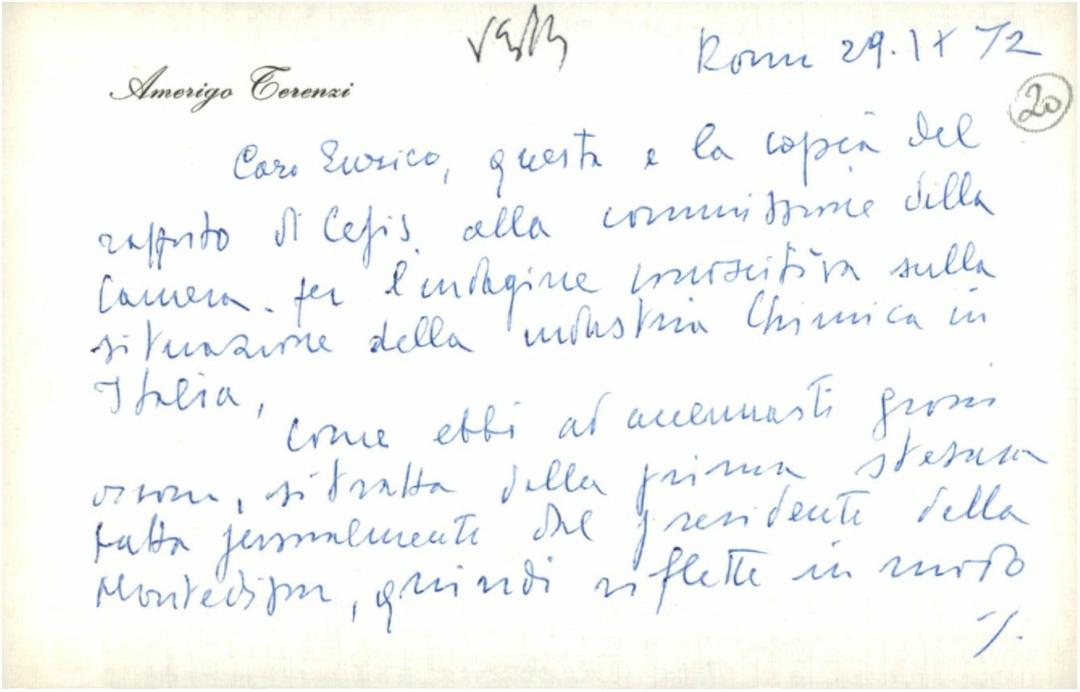 Roma 29.IX 72
Amerigo Terenzi
20
Caro Enrico, questa e la copia del
rapporto di Cefis alla commissione della
Camera per l'indagine conoscitiva sulla
situazione della industria Chimica in
Italia,
Come ebbi ad accennarti giorni
orsono, si tratta della prima stesura
fatta personalmente dal presidente della
Montedison, quindi riflette in modo
./.